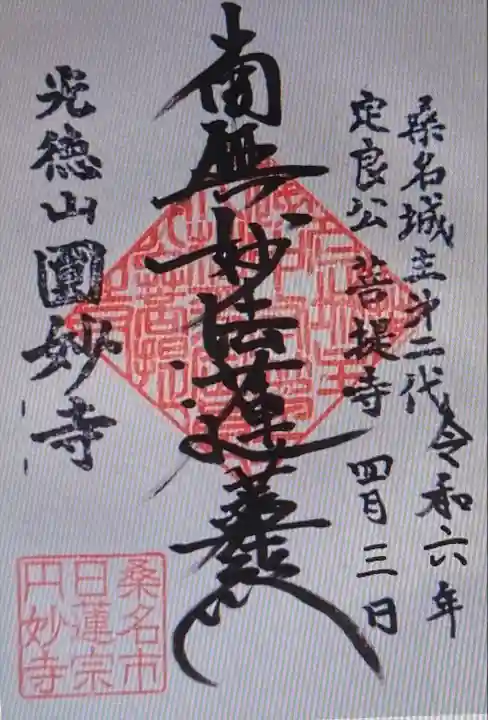 桑名城主第二代
定良公 菩提寺
令和六年
四月三日
南無妙法蓮華経
光徳山圓妙寺
桑名市
日蓮宗
円妙寺